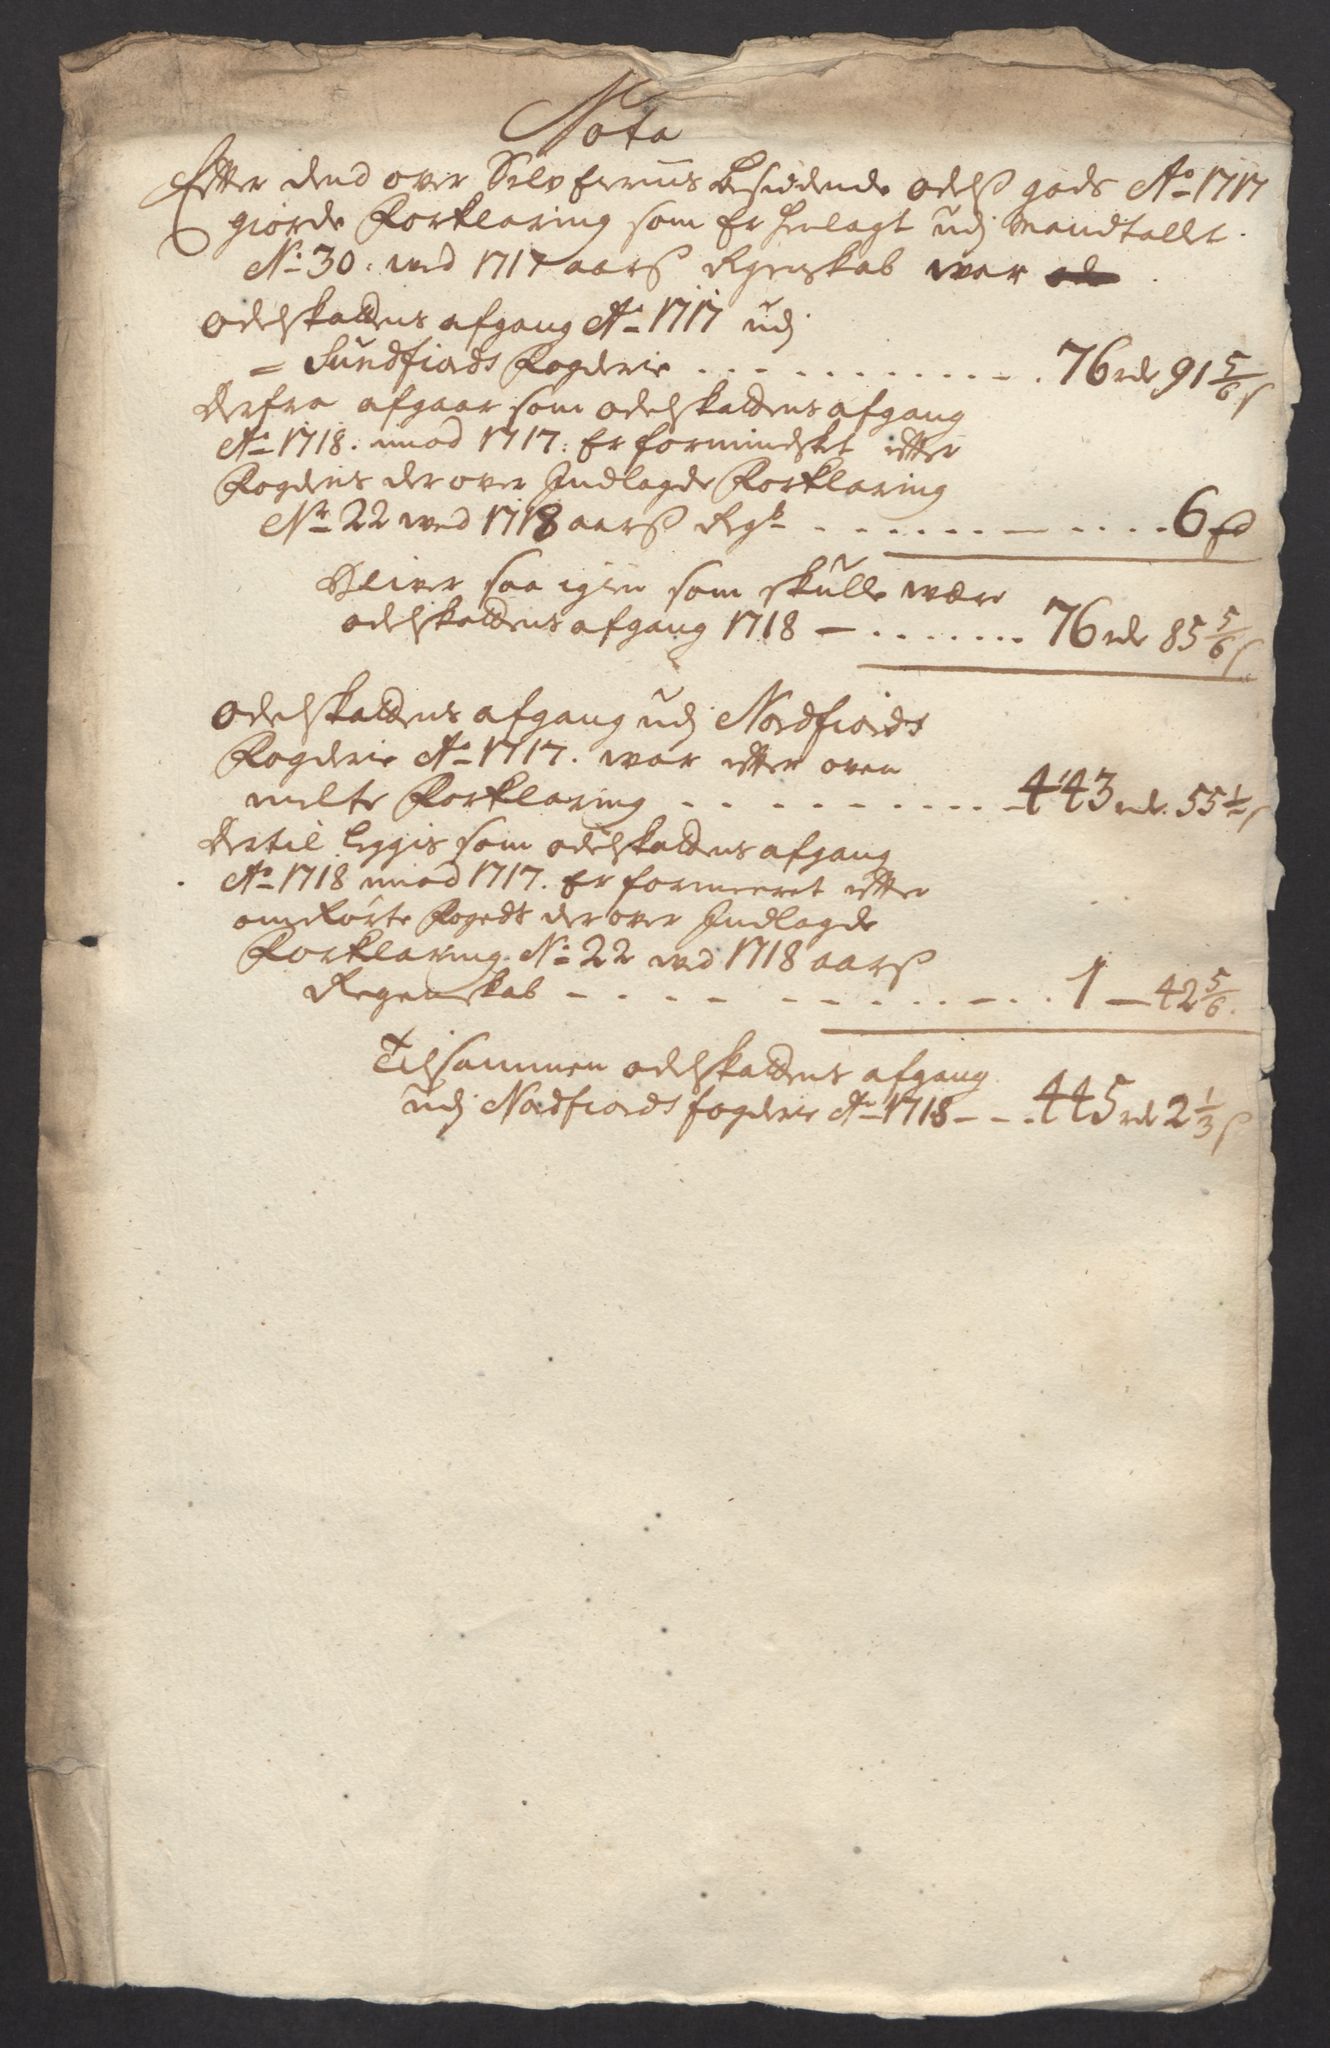 Nota
Efter dend over Selv Eernis besiddende odelß gods Aō 1717
giorde Forklaring som Er henlagt udj Mandtallet
No 30. ved 1717 aarß Regenskab war
odelskattens afgang Aō 1717 udj
= Sundfiords Fogderie . . . . . . . . . . . . 76 rdr 91 5/6 s
Derfra afgaar som odelskattens afgang
Aō 1718. imod 1717. Er formindsket efter
Fogdens der over Indlagde Forklaring
Nr 22 wed 1718 aarß Regsk . . . . . . . . . . 6 s
Bliver saa igien som skulle være
odelskattens afgang 1718 — . . . . . . . 76 rdr 85 5/6 s
odelskattens afgang udj Nordfiords
Fogderie Aō 1717. war efter oven
melte Forklaring . . . . . . . . . . . 443 rdr. 55 1/2 s
Dertil legges som odelskattens afgang
Aō 1718 imod 1717. Er formeeret efter
ommelte Fogeds der over Indlagde
Forklaring No 22 wed 1718 aarß
Regenskab - . . . - - . . . - . . 1 — 42 5/6.
Tilsammen odelskattens afgang
udj Nordfiords fogderie Aō 1718 - - . 445 rdr 2 1/3 s